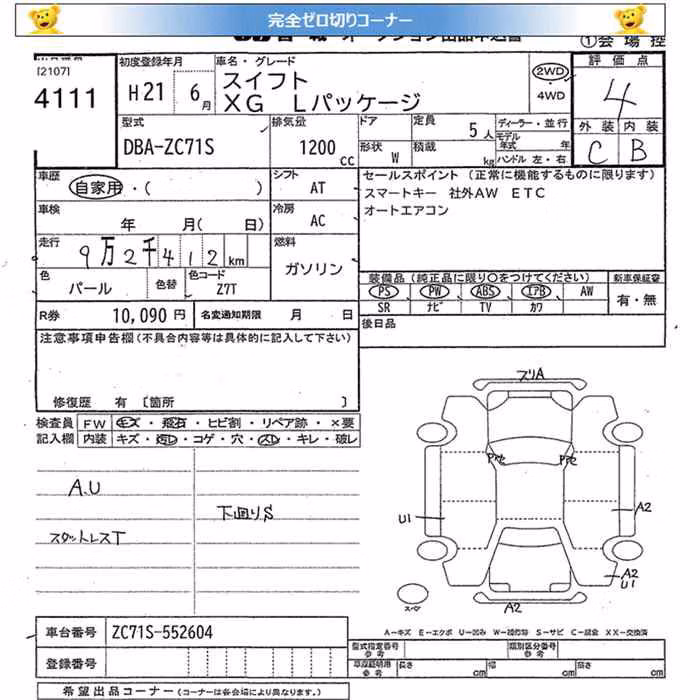 完全ゼロ切りコーナー
[2107]
4111
初度登録年月
H21 6月
車名・グレード
スイフト
XG Lパッケージ
2WD
・4WD
①会場控
評価点
4
外装 内装
C B
型式
DBA-ZC71S
排気量
1200 cc
ドア
形状 W
定員 5人
積載 kg
ディーラー・並行
モデル年式 年
ハンドル 左・右
車歴
自家用・( )
シフト AT
車検
年 月( 日)
冷房 AC
走行
9万2千412 km
燃料
ガソリン
色 パール
色替
色コード
Z7T
R券 10,090円
名変通知期限 月 日
セールスポイント (正常に機能するものに限ります)
スマートキー 社外AW ETC
オートエアコン
装備品(純正品に限り○をつけてください)
新車保証書
PS PW ABS エアB AW
SR ナビ TV カワ
有・無
後日品
注意事項申告欄(不具合内容等は具体的に記入して下さい)
修復歴 有 〔箇所 〕
検査員 FW キズ・飛石・ヒビ割・リペア跡・×要
記入欄 内装 キズ・汚レ・コゲ・穴・スレ・キレ・破レ
A.U
下回りS
スタットレスT
スリA
Pアセ Pアセ
U1
A2
A2
U1
A2
スペア
A-キズ E-エクボ U-凹み W-補修跡 S-サビ C-腐食 XX-交換済
車台番号 ZC71S-552604
登録番号
型式指定番号
参考
類別区分番号
参考
車庫証明用
参考
長さ cm 幅 cm 高さ cm
希望出品コーナー(コーナーは各会場により異なります。)